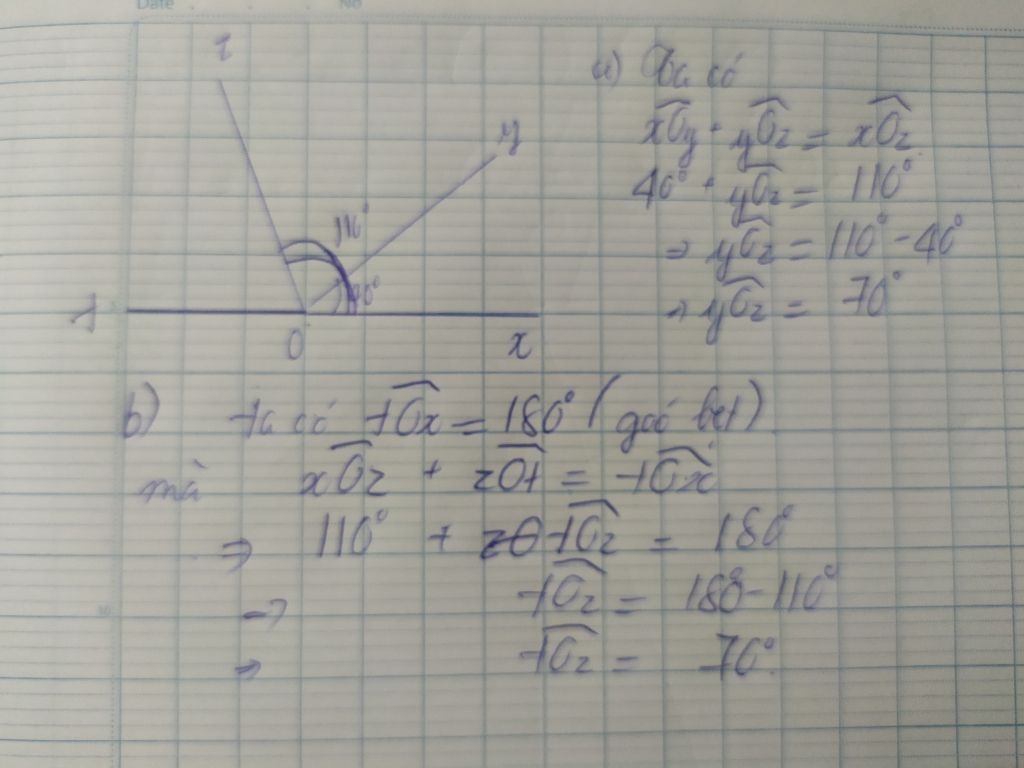 Date No
z
y
110°
40°
t
O
x
a) Ta có
xOy + yOz = xOz
40° + yOz = 110°
⇒ yOz = 110° - 40°
⇒ yOz = 70°
b) ta có tOx = 180° (góc bẹt)
mà xOz + zOt = tOx
⇒ 110° + tOz = 180°
⇒ tOz = 180° - 110°
⇒ tOz = 70°.